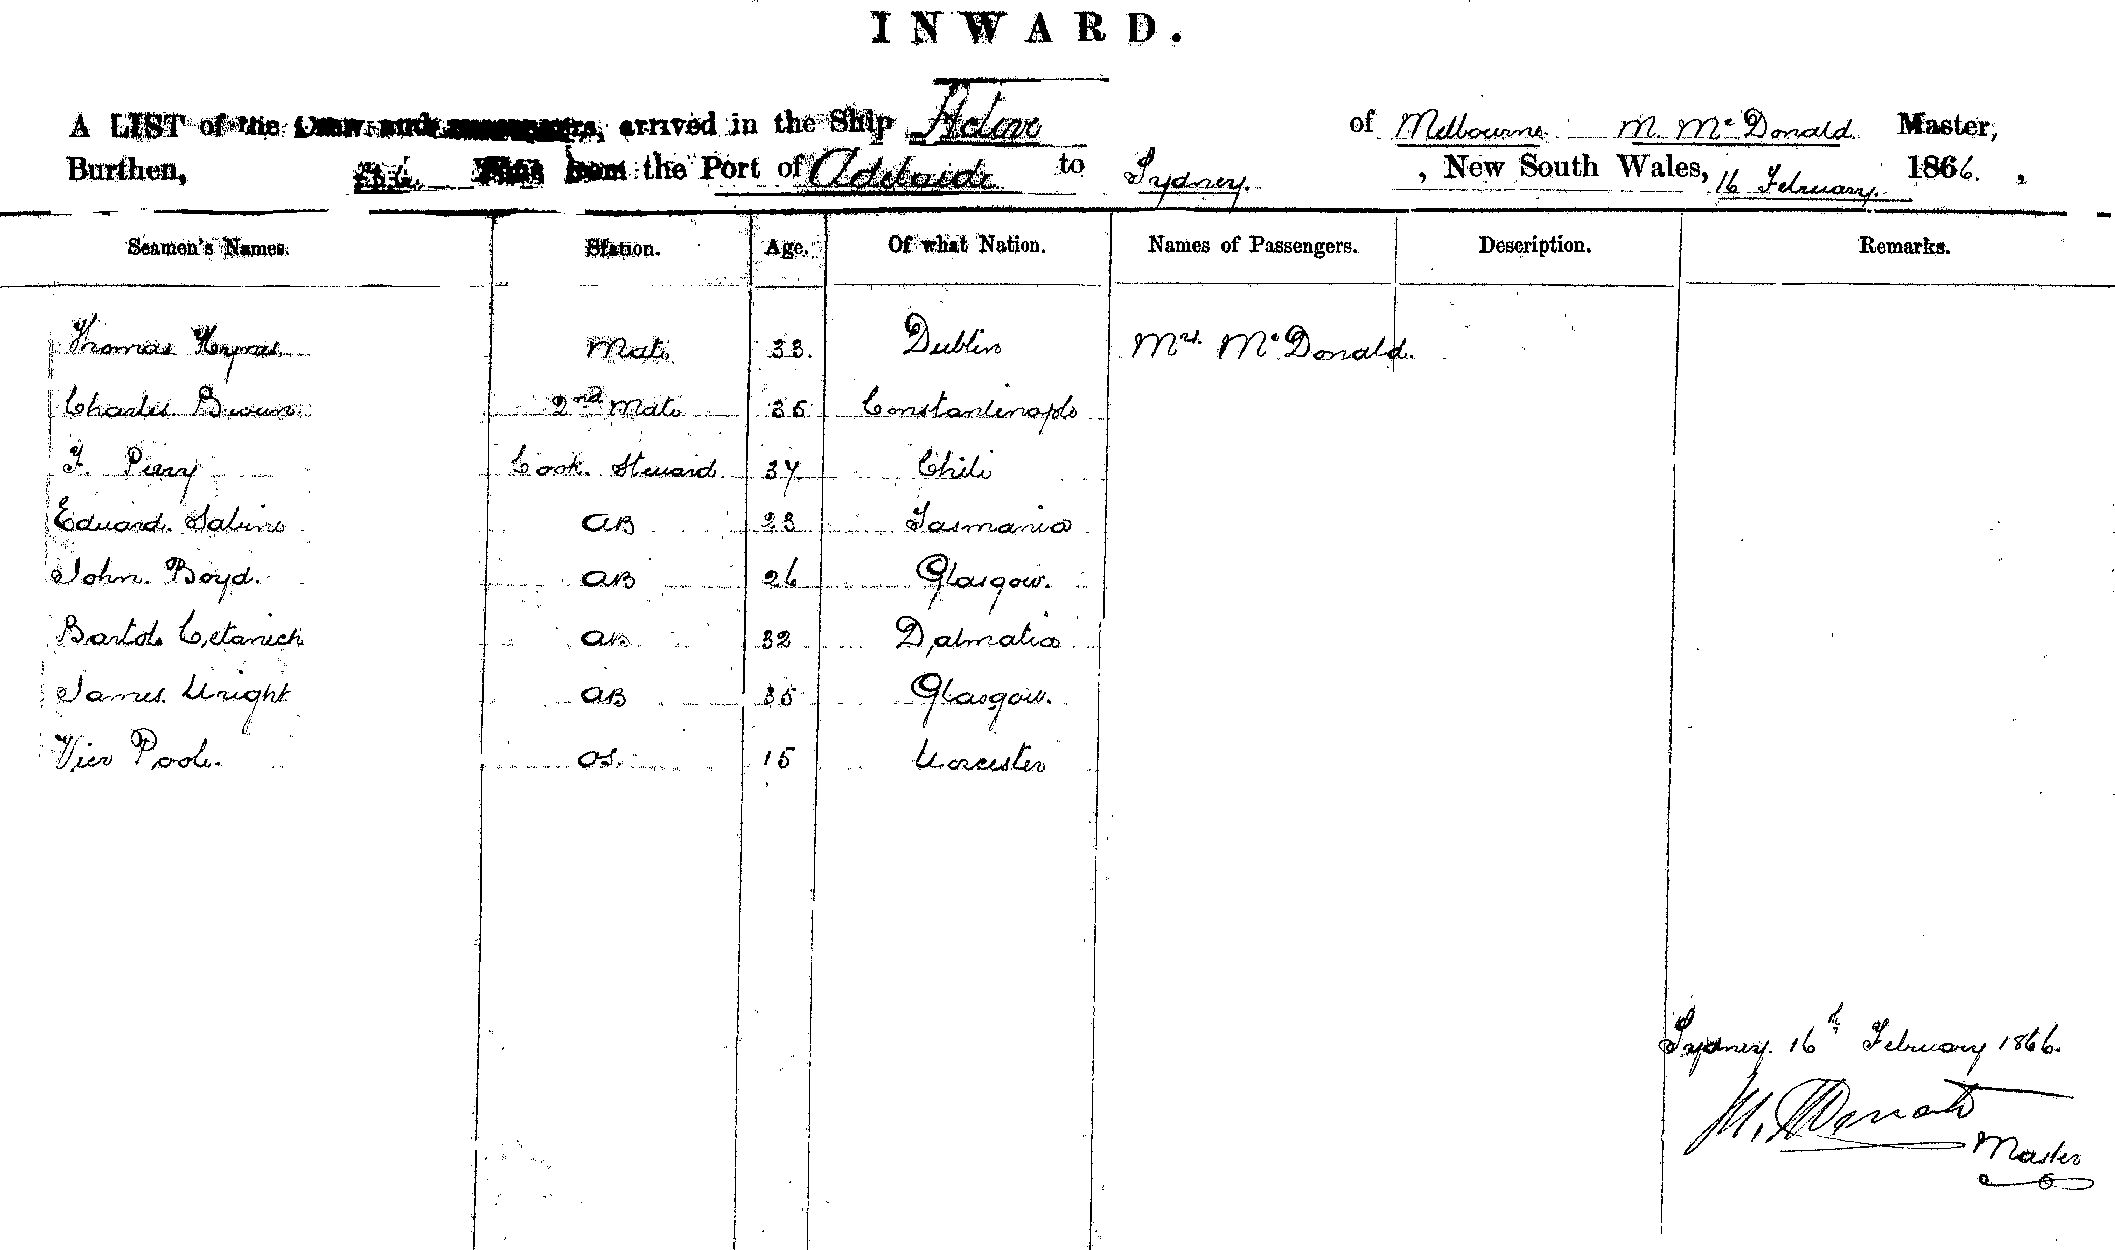 INWARD.
A LIST of the Crew and Passengers, arrived in the Ship Active of Melbourne M McDonald Master,
Burthen, Tons from the Port of Adelaide to Sydney. , New South Wales, 16 February. 1866. ,
Seamen's Names. Station. Age. Of what Nation. Names of Passengers. Description. Remarks.
Thomas Mate 33. Dublin Mrs. McDonald.
Charles Brown 2nd Mate 35 Constantinople
Cook. Steward 37 Chili
Edward. Sabine AB 23 Tasmania
John. Boyd. AB 26 Glasgow.
AB 32 Dalmatia
James. Wright AB 35 Glasgow.
Poole. OS. 15 Worcester
Sydney. 16th February 1866.
M. McDonald
Master